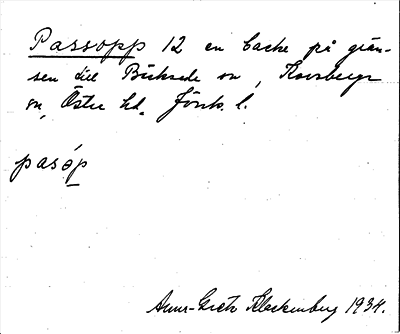 Passopp 12 en backe på grän-
sen till Bäckseda sn, Korsberga
sn, Östra hd. Jönk. l.
pasóp
Anna-Greta Klockenberg 1934.